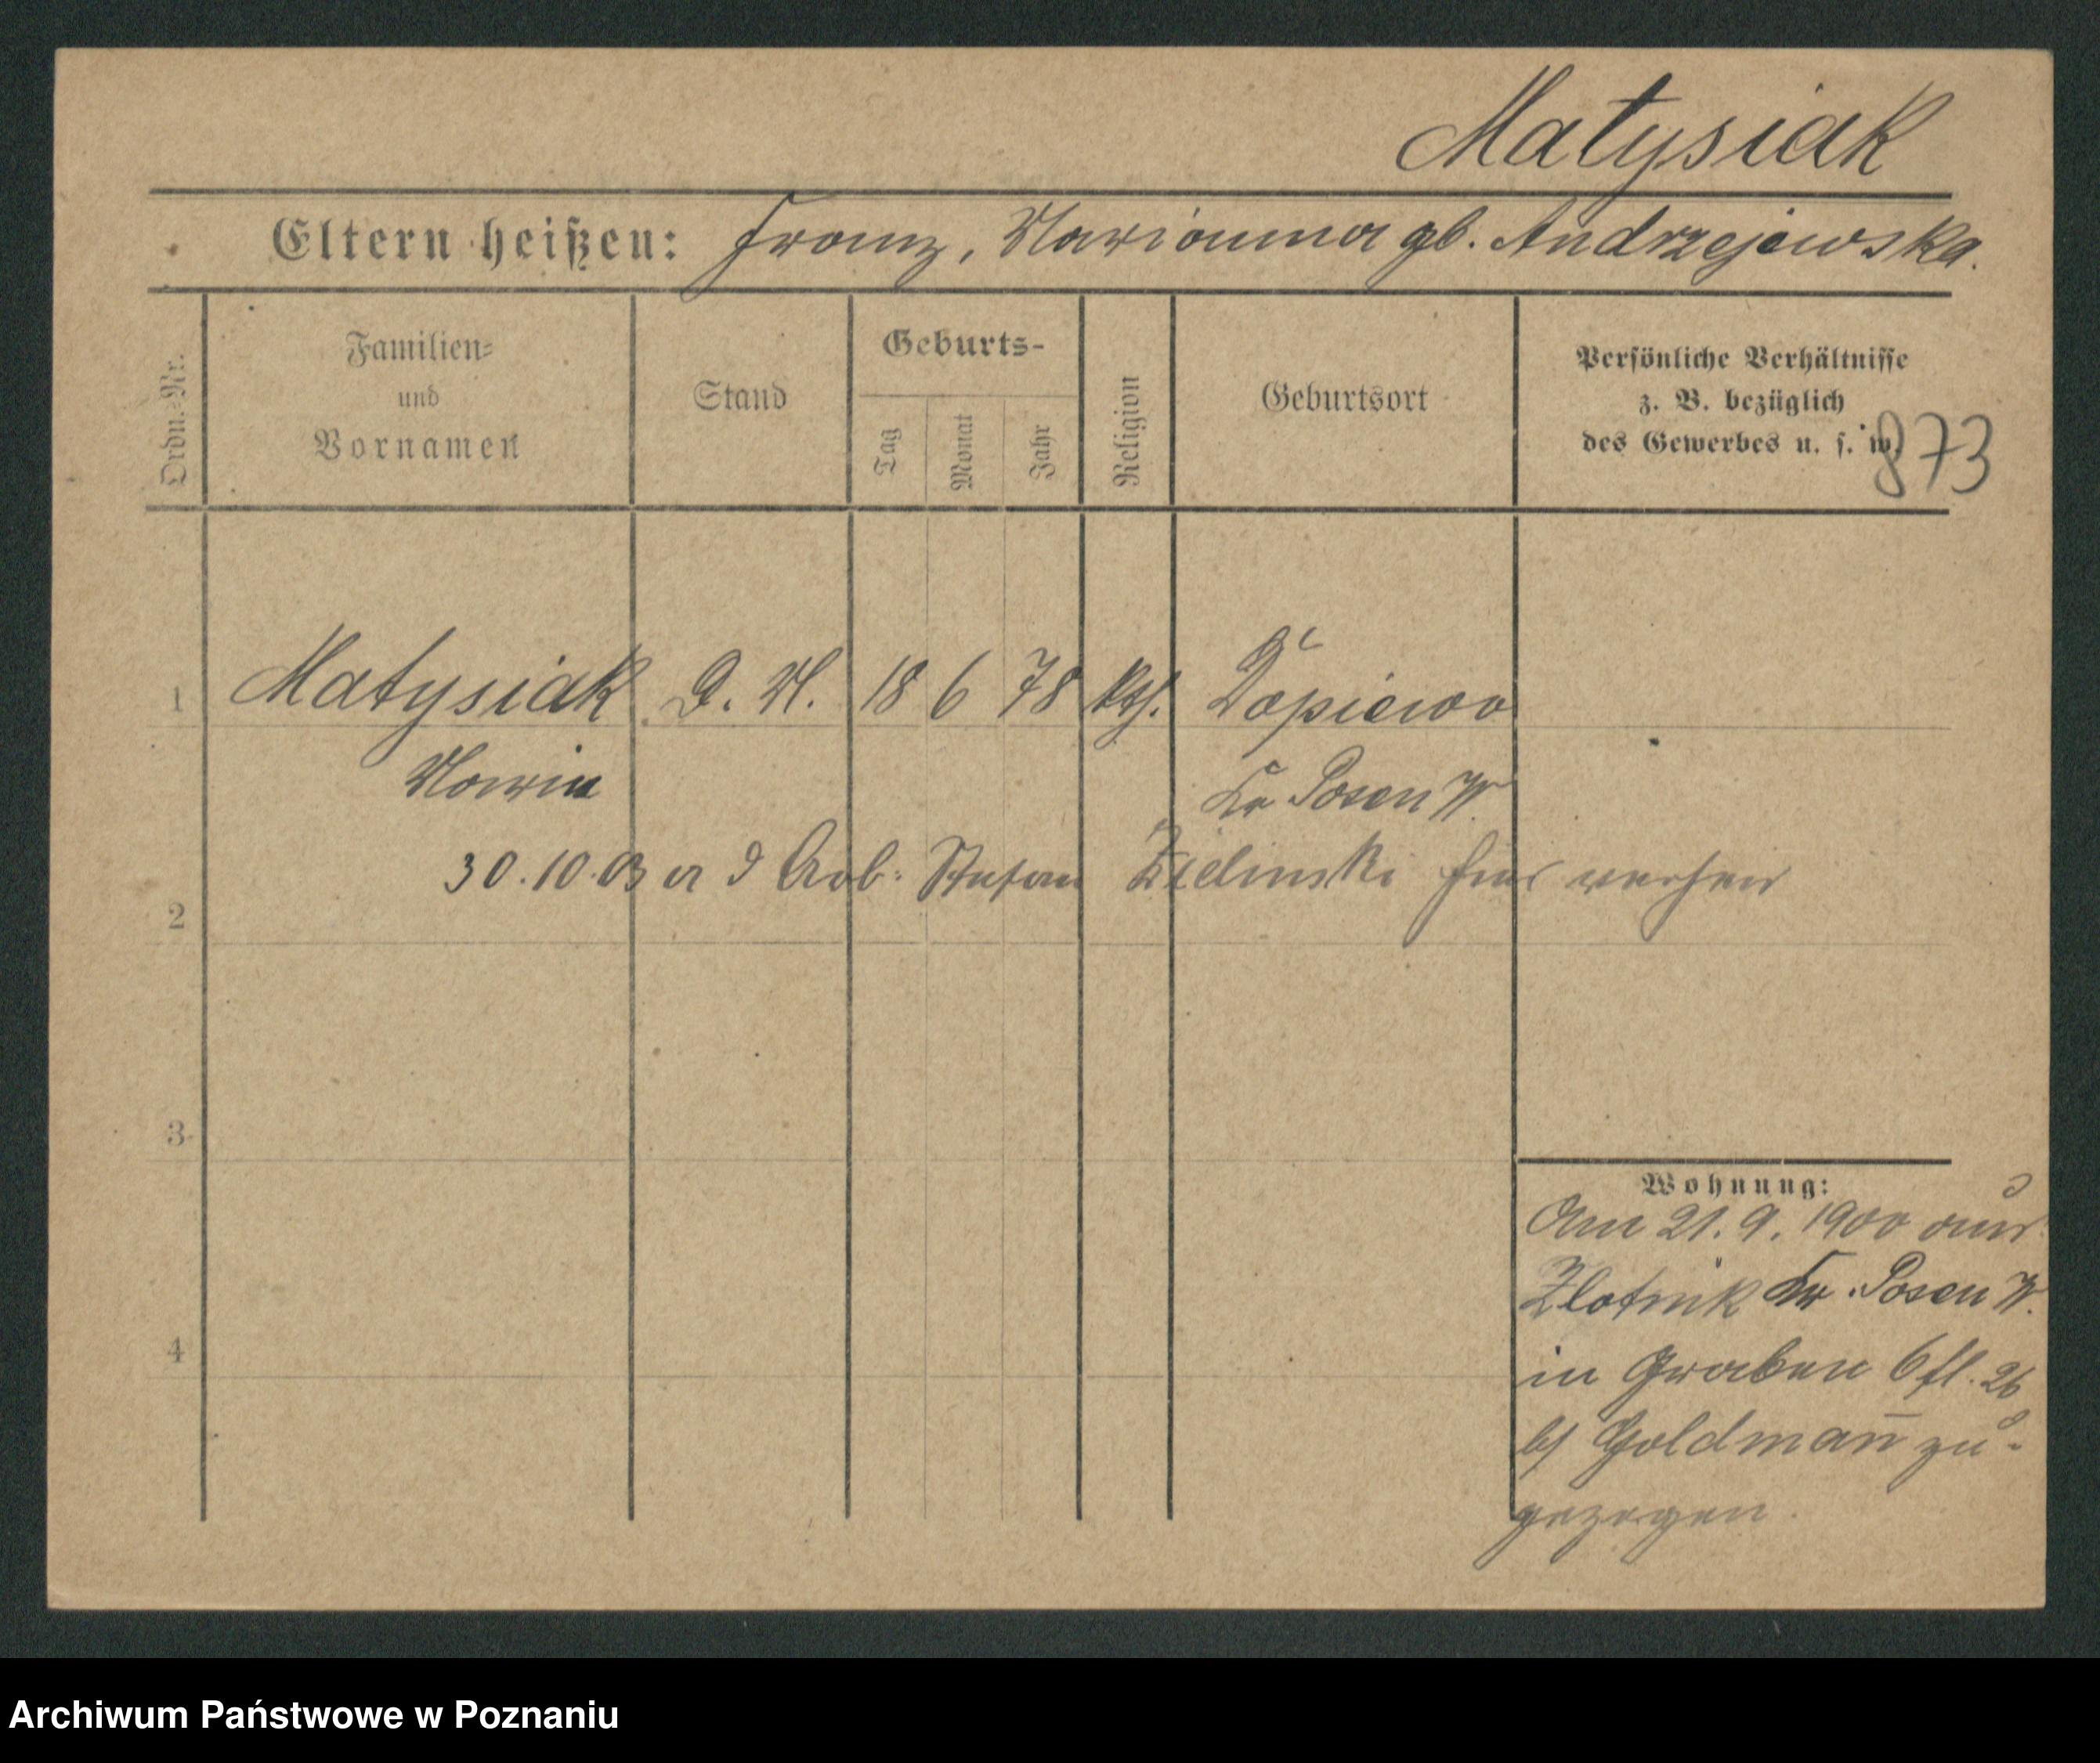 Matysiak
Eltern heißen: Franz, Marianna gb. Andrzejewska.
Ordn.-Nr.
Familien-
und
Vornamen
Stand
Geburts-
Tag
Monat
Jahr
Religion
Geburtsort
Persönliche Verhältnisse
z. B. bezüglich
des Gewerbes u. s. w.
873
1 Matysiak D. M. 18 6 78 kth. Dopiewo
Maria Kr Posen W.
30.10.03 Arb. Stefan Zielinski
2
3
4
Wohnung:
Am 21.9.1900 aus
Zlotnik Kr. Posen W.
in Graben 6 fl. 26
b/ Goldman̄ zu-
gezogen.
Archiwum Państwowe w Poznaniu